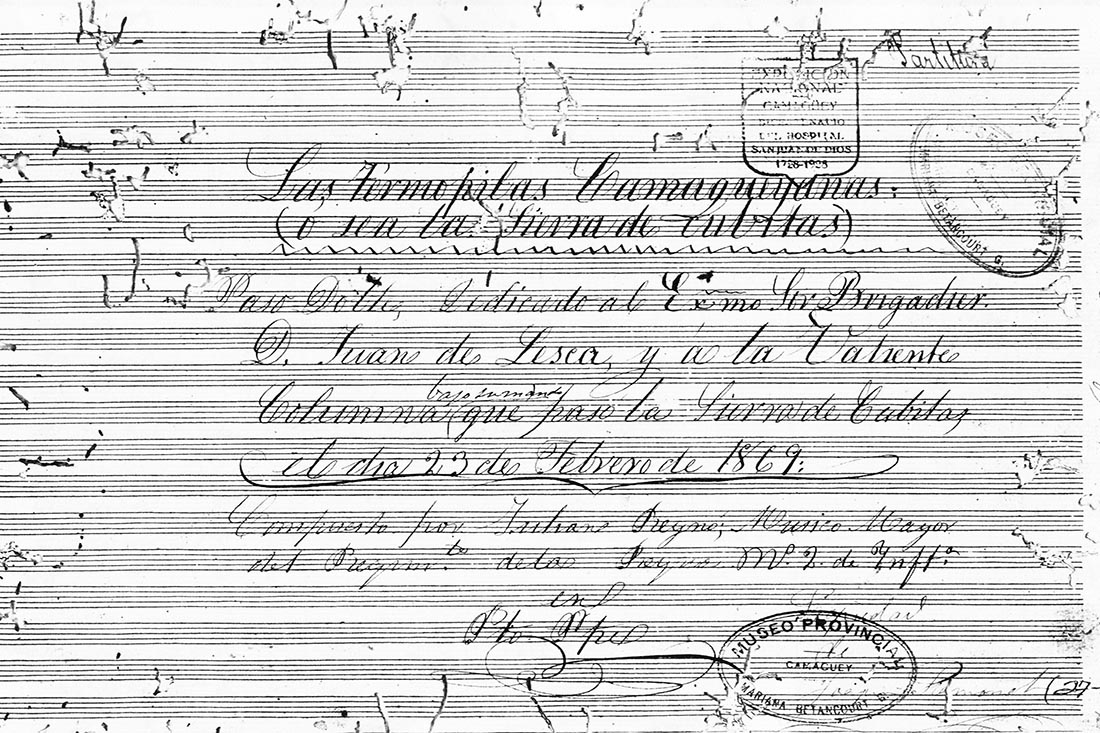 Partitura
EXPOSICION
NACIONAL
CAMAGUEY
BICENTENARIO
DEL HOSPITAL
SAN JUAN DE DIOS
1728-1928
Las Termopilas Camagueyanas:
(ó sea la Sierra de Cubitas)
Paso Doble, Dedicado al Exmo Sor Brigadier.
D. Juan de Lesca, y á la Valiente
bajo su mando
Columna que paso la Sierra de Cubitas,
el dia 23 de Febrero de 1869.
Compuesto por Juliano Reynó, Musico Mayor
del Regimto de la Reyna Nº. 2. de Ynfta
en
Pto Ppe
MUSEO PROVINCIAL
CAMAGUEY
MARIANA BETANCOURT G.
MARIANA BETANCOURT G.
CAMAGUEY